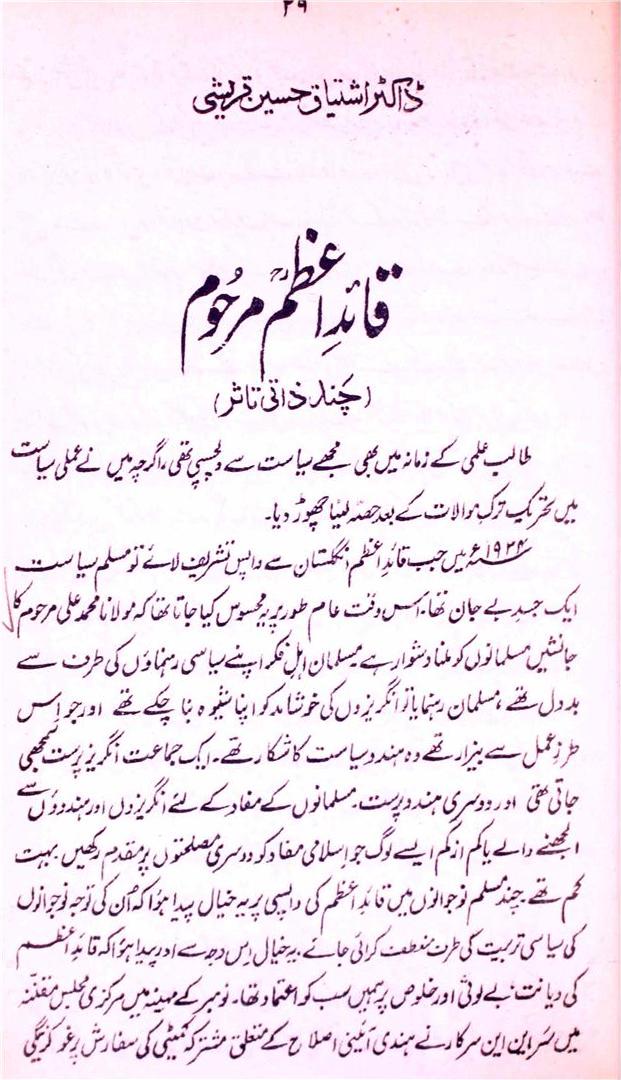 ۲۹
ڈاکٹر اشتیاق حسین قریشی
قائدِ اعظمؒ مرحُوم
(چند ذاتی تاثر)
طالب علمی کے زمانہ میں بھی مجھے سیاست سے دلچسپی تھی، اگرچہ میں نے عملی سیاست
میں تحریک ترکِ موالات کے بعد حصّہ لینا چھوڑ دیا۔
۱۹۳۴ء میں جب قائدِ اعظم انگلستان سے واپس تشریف لائے تو مسلم سیاست
ایک جسدِ بے جان تھا۔ اس وقت عام طور پر یہ محسوس کیا جاتا تھا کہ مولانا محمد علی مرحوم کا
جانشیں مسلمانوں کو ملنا دشوار ہے۔ مسلمان اہلِ فکر اپنے سیاسی رہنماؤں کی طرف سے
بددل تھے، مسلمان رہنما یا تو انگریزوں کی خوشامد کو اپنا شیوہ بنا چکے تھے اور جو اس
طرزِ عمل سے بیزار تھے وہ ہندو سیاست کا شکار تھے۔ ایک جماعت انگریز پرست سمجھی
جاتی تھی اور دوسری ہندو پرست۔ مسلمانوں کے مفاد کے لئے انگریزوں اور ہندوؤں سے
الجھنے والے یا کم از کم ایسے لوگ جو اسلامی مفاد کو دوسری مصلحتوں پر مقدم رکھیں بہت
کم تھے۔ چند مسلم نوجوانوں میں قائدِ اعظم کی واپسی پر یہ خیال پیدا ہوا کہ اُن کی توجہ نوجوانوں
کی سیاسی تربیت کی طرف منعطف کرائی جائے، یہ خیال اس وجہ سے اور پیدا ہوا کہ قائدِ اعظم
کی دیانت، بے لوثی اور خلوص پر ہمیں سب کو اعتماد تھا۔ نومبر کے مہینہ میں مرکزی مجلسِ مقنّنہ
میں سَر این این سرکار نے ہندی آئینی اصلاح کے متعلق مشترکہ کمیٹی کی سفارش پر غور کرنے کی